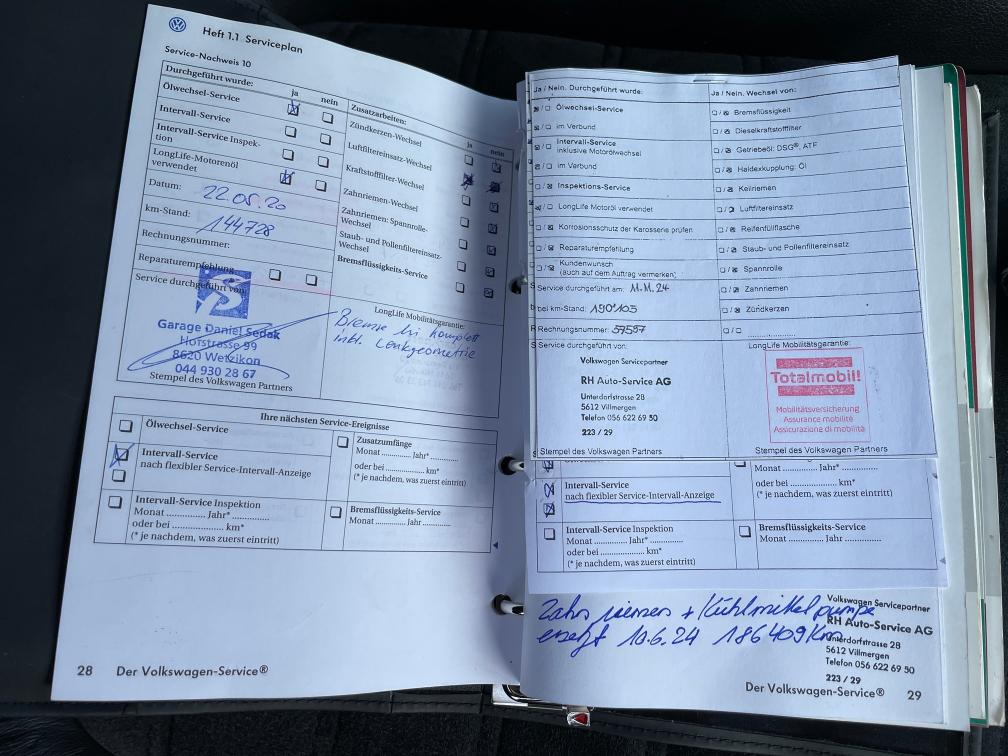 Heft 1.1 Serviceplan
Service-Nachweis 10
Durchgeführt wurde:
ja
nein
Zusatzarbeiten:
ja
nein
Ölwechsel-Service
Zündkerzen-Wechsel
Intervall-Service
Luftfiltereinsatz-Wechsel
Intervall-Service Inspek-
tion
Kraftstofffilter-Wechsel
LongLife-Motorenöl
verwendet
Zahnriemen-Wechsel
Datum: 22.05.20
Zahnriemen: Spannrolle-
Wechsel
km-Stand: 144728
Staub- und Pollenfiltereinsatz-
Wechsel
Rechnungsnummer:
Bremsflüssigkeits-Service
Reparaturempfehlung
Service durchgeführt von:
LongLife Mobilitätsgarantie:
Garage Daniel Sedak
Hofstrasse 99
8620 Wetzikon
044 930 28 67
Stempel des Volkswagen Partners
Bremse hi komplett
inkl. Lenkgeometrie
Ihre nächsten Service-Ereignisse
Ölwechsel-Service
Zusatzumfänge
Monat ............ Jahr* ............
oder bei ............ km*
(* je nachdem, was zuerst eintritt)
Intervall-Service
nach flexibler Service-Intervall-Anzeige
Intervall-Service Inspektion
Monat ............ Jahr* ............
oder bei ............ km*
(* je nachdem, was zuerst eintritt)
Bremsflüssigkeits-Service
Monat ............ Jahr ............
28 Der Volkswagen-Service®
Ja / Nein. Durchgeführt wurde:
Ja / Nein. Wechsel von:
Ölwechsel-Service
Bremsflüssigkeit
im Verbund
Dieselkraftstofffilter
Intervall-Service
inklusive Motorölwechsel
Getriebeöl: DSG®, ATF
im Verbund
Haldexkupplung: Öl
Inspektions-Service
Keilriemen
LongLife Motoröl verwendet
Luftfiltereinsatz
Korrosionsschutz der Karosserie prüfen
Reifenfüllflasche
Reparaturempfehlung
Staub- und Pollenfiltereinsatz
Kundenwunsch
(auch auf dem Auftrag vermerken)
Spannrolle
Service durchgeführt am: 11.11.24
Zahnriemen
bei km-Stand: 190105
Zündkerzen
Rechnungsnummer: 57597
Service durchgeführt von:
LongLife Mobilitätsgarantie:
Volkswagen Servicepartner
RH Auto-Service AG
Unterdorfstrasse 28
5612 Villmergen
Telefon 056 622 69 50
223 / 29
Totalmobil!
Mobilitätsversicherung
Assurance mobilité
Assicurazione di mobilità
Stempel des Volkswagen Partners
Stempel des Volkswagen Partners
Intervall-Service
nach flexibler Service-Intervall-Anzeige
Monat ............ Jahr* ............
oder bei ............ km*
(* je nachdem, was zuerst eintritt)
Intervall-Service Inspektion
Monat ............ Jahr* ............
oder bei ............ km*
(* je nachdem, was zuerst eintritt)
Bremsflüssigkeits-Service
Monat ............ Jahr ............
Zahnriemen + Kühlmittelpumpe
ersetzt 10.6.24 186409 Km
Volkswagen Servicepartner
RH Auto-Service AG
Unterdorfstrasse 28
5612 Villmergen
Telefon 056 622 69 50
223 / 29
Der Volkswagen-Service® 29